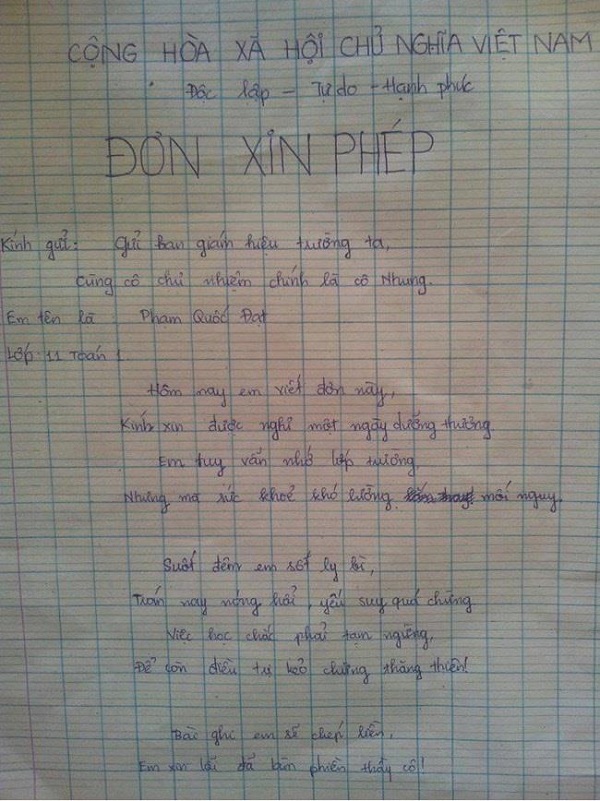 CỘNG HÒA XÃ HỘI CHỦ NGHĨA VIỆT NAM
Độc lập - Tự do - Hạnh phúc
ĐƠN XIN PHÉP
Kính gửi: Gửi ban giám hiệu trường ta,
Cùng cô chủ nhiệm chính là cô Nhung.
Em tên là: Phạm Quốc Đạt
Lớp 11 Toán 1.
Hôm nay em viết đơn này,
Kính xin được nghỉ một ngày dưỡng thương
Em tuy vấn nhớ lớp trường,
Nhưng mà sức khoẻ khó lường mối nguy.
Suốt đêm em sốt ly bì,
Trán nay nóng hổi, yếu suy quá chừng
Việc học chắc phải tạm ngừng,
Để còn điều tự kẻo chừng thăng thiên!
Bài ghi em sẽ chép liền,
Em xin lỗi đã làm phiền thầy cô!